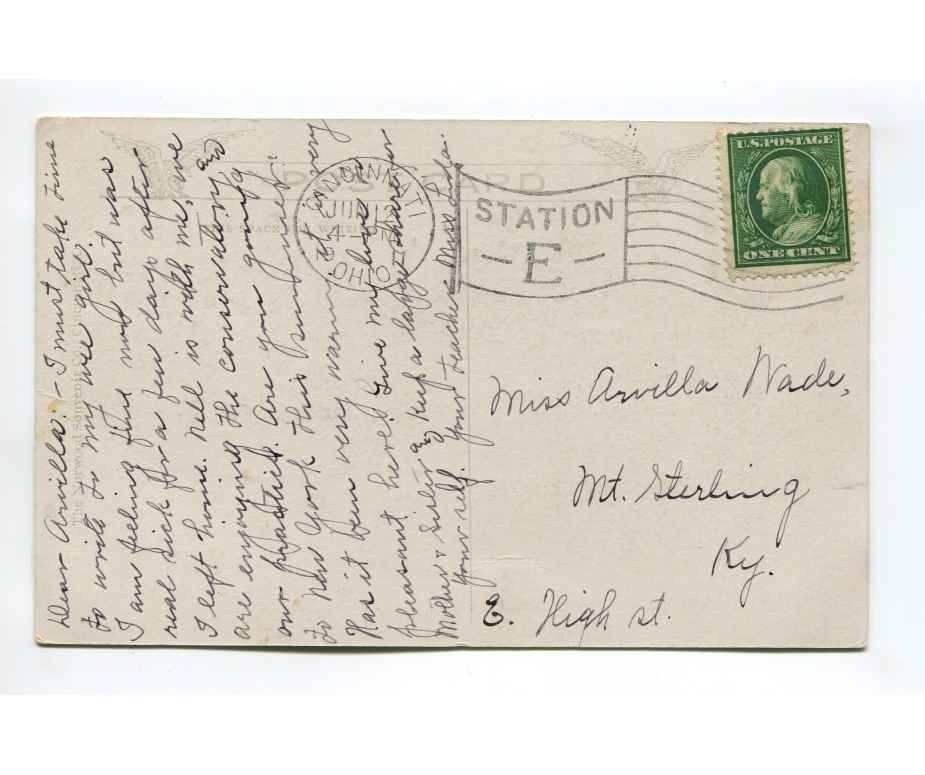 Dear Arvilla:- I must take time
to write to my wee girl.
I am feeling fine now but was
real sick for a few days after
I left home. Nell is with me, we
are enjoying the conservatory and
our practice. Are you going
to New York this summer?
Has it been very warm? It is very
pleasant here. Give my love to
Mother & Sister and keep a large share for
yourself. Your teacher Miss Lela.
POST CARD
CINCINNATI
JUL
OHIO
STATION
E
U.S. POSTAGE
ONE CENT
Miss Arvilla Wade,
Mt. Sterling
Ky.
E. High st.